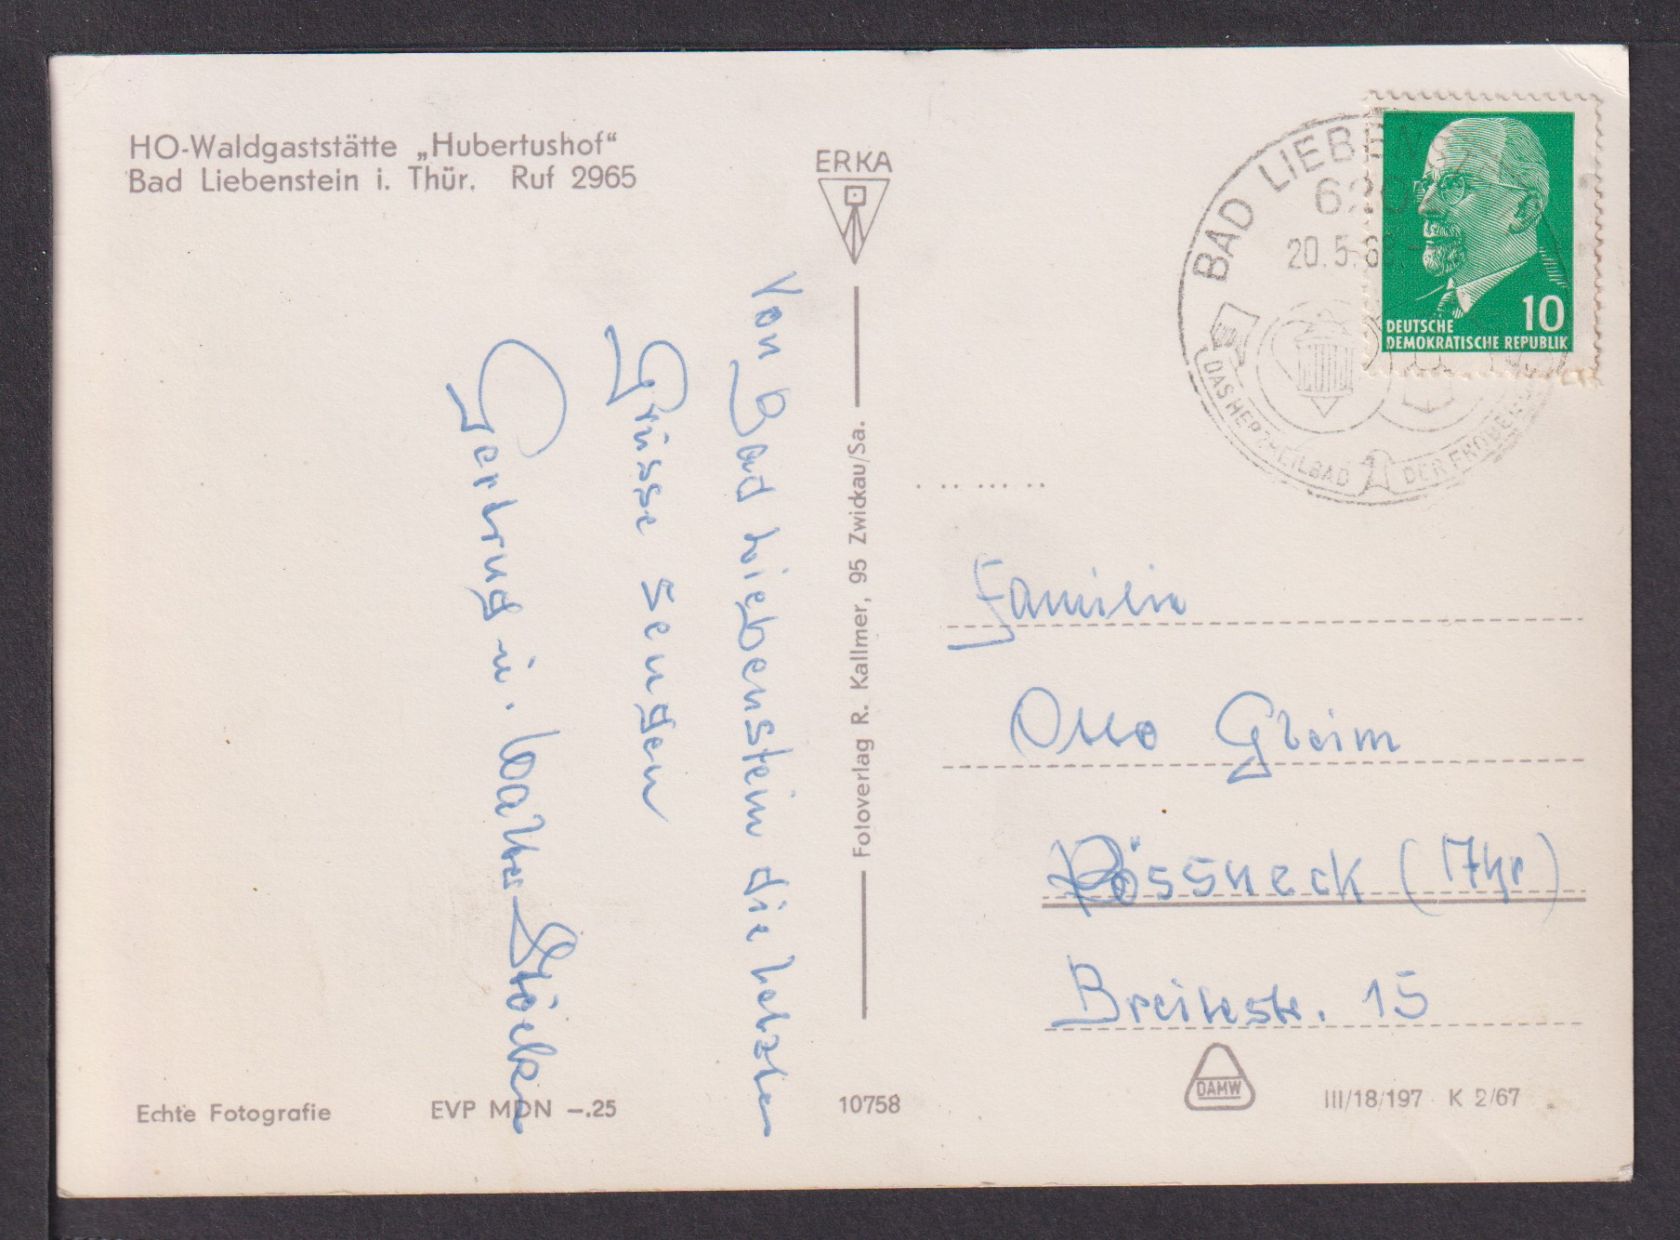 HO-Waldgaststätte „Hubertushof“
Bad Liebenstein i. Thür. Ruf 2965
ERKA
Von Bad Liebenstein die herzln
Grüsse sengen
Gertrug u. Walter
Fotoverlag R. Kallmer, 95 Zwickau/Sa.
BAD
20.5.6
DAS HERZHEILBAD
DER
10
DEUTSCHE
DEMOKRATISCHE REPUBLIK
Familie
Otto Gleim
Pössneck (Thr)
Breitestr. 15
Echte Fotografie
EVP MDN –.25
10758
DAMW
III/18/197 K 2/67